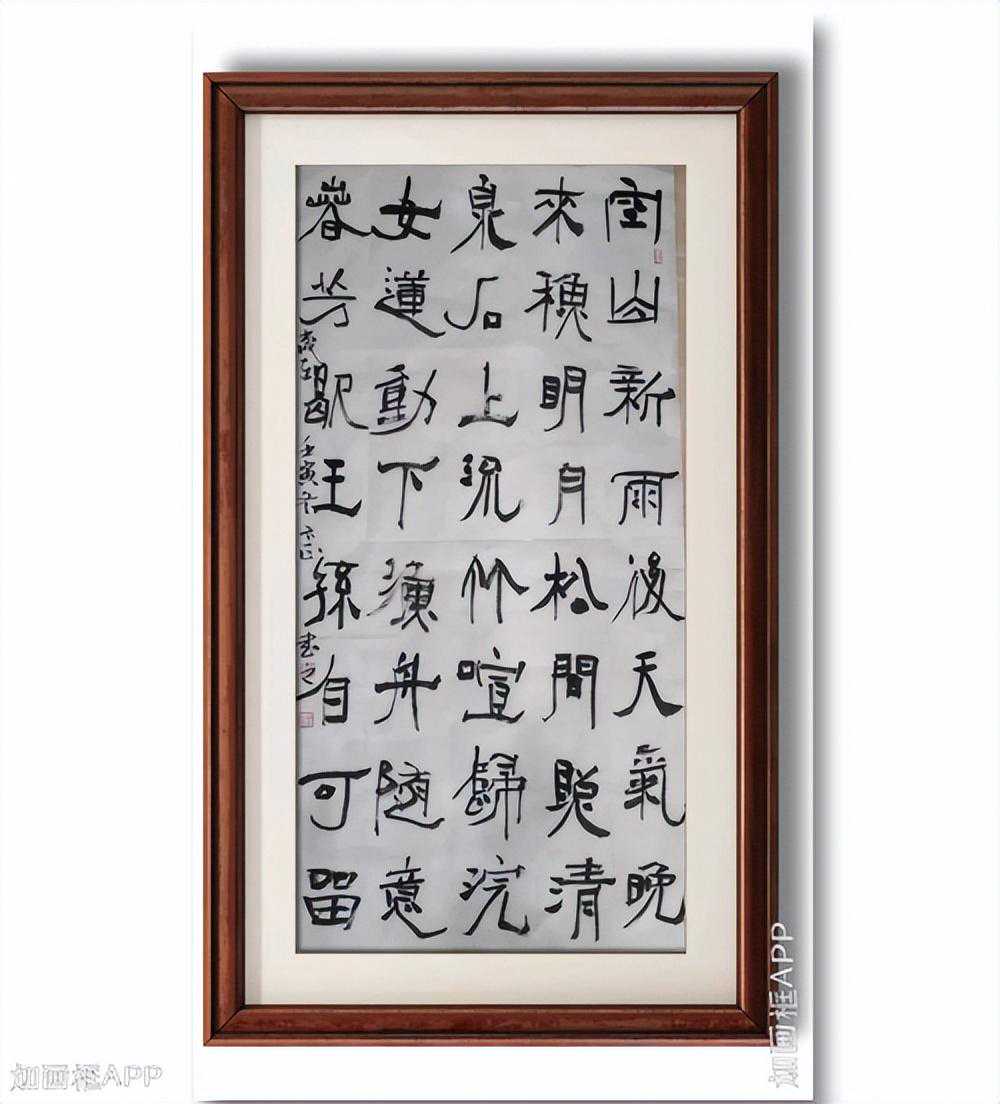 空山新雨後天氣晚
來秋明月松間照清
泉石上流竹喧歸浣
女蓮動下漁舟随意
春芳歇王孫自可留
壬寅年
書之
加画框APP
加画框APP